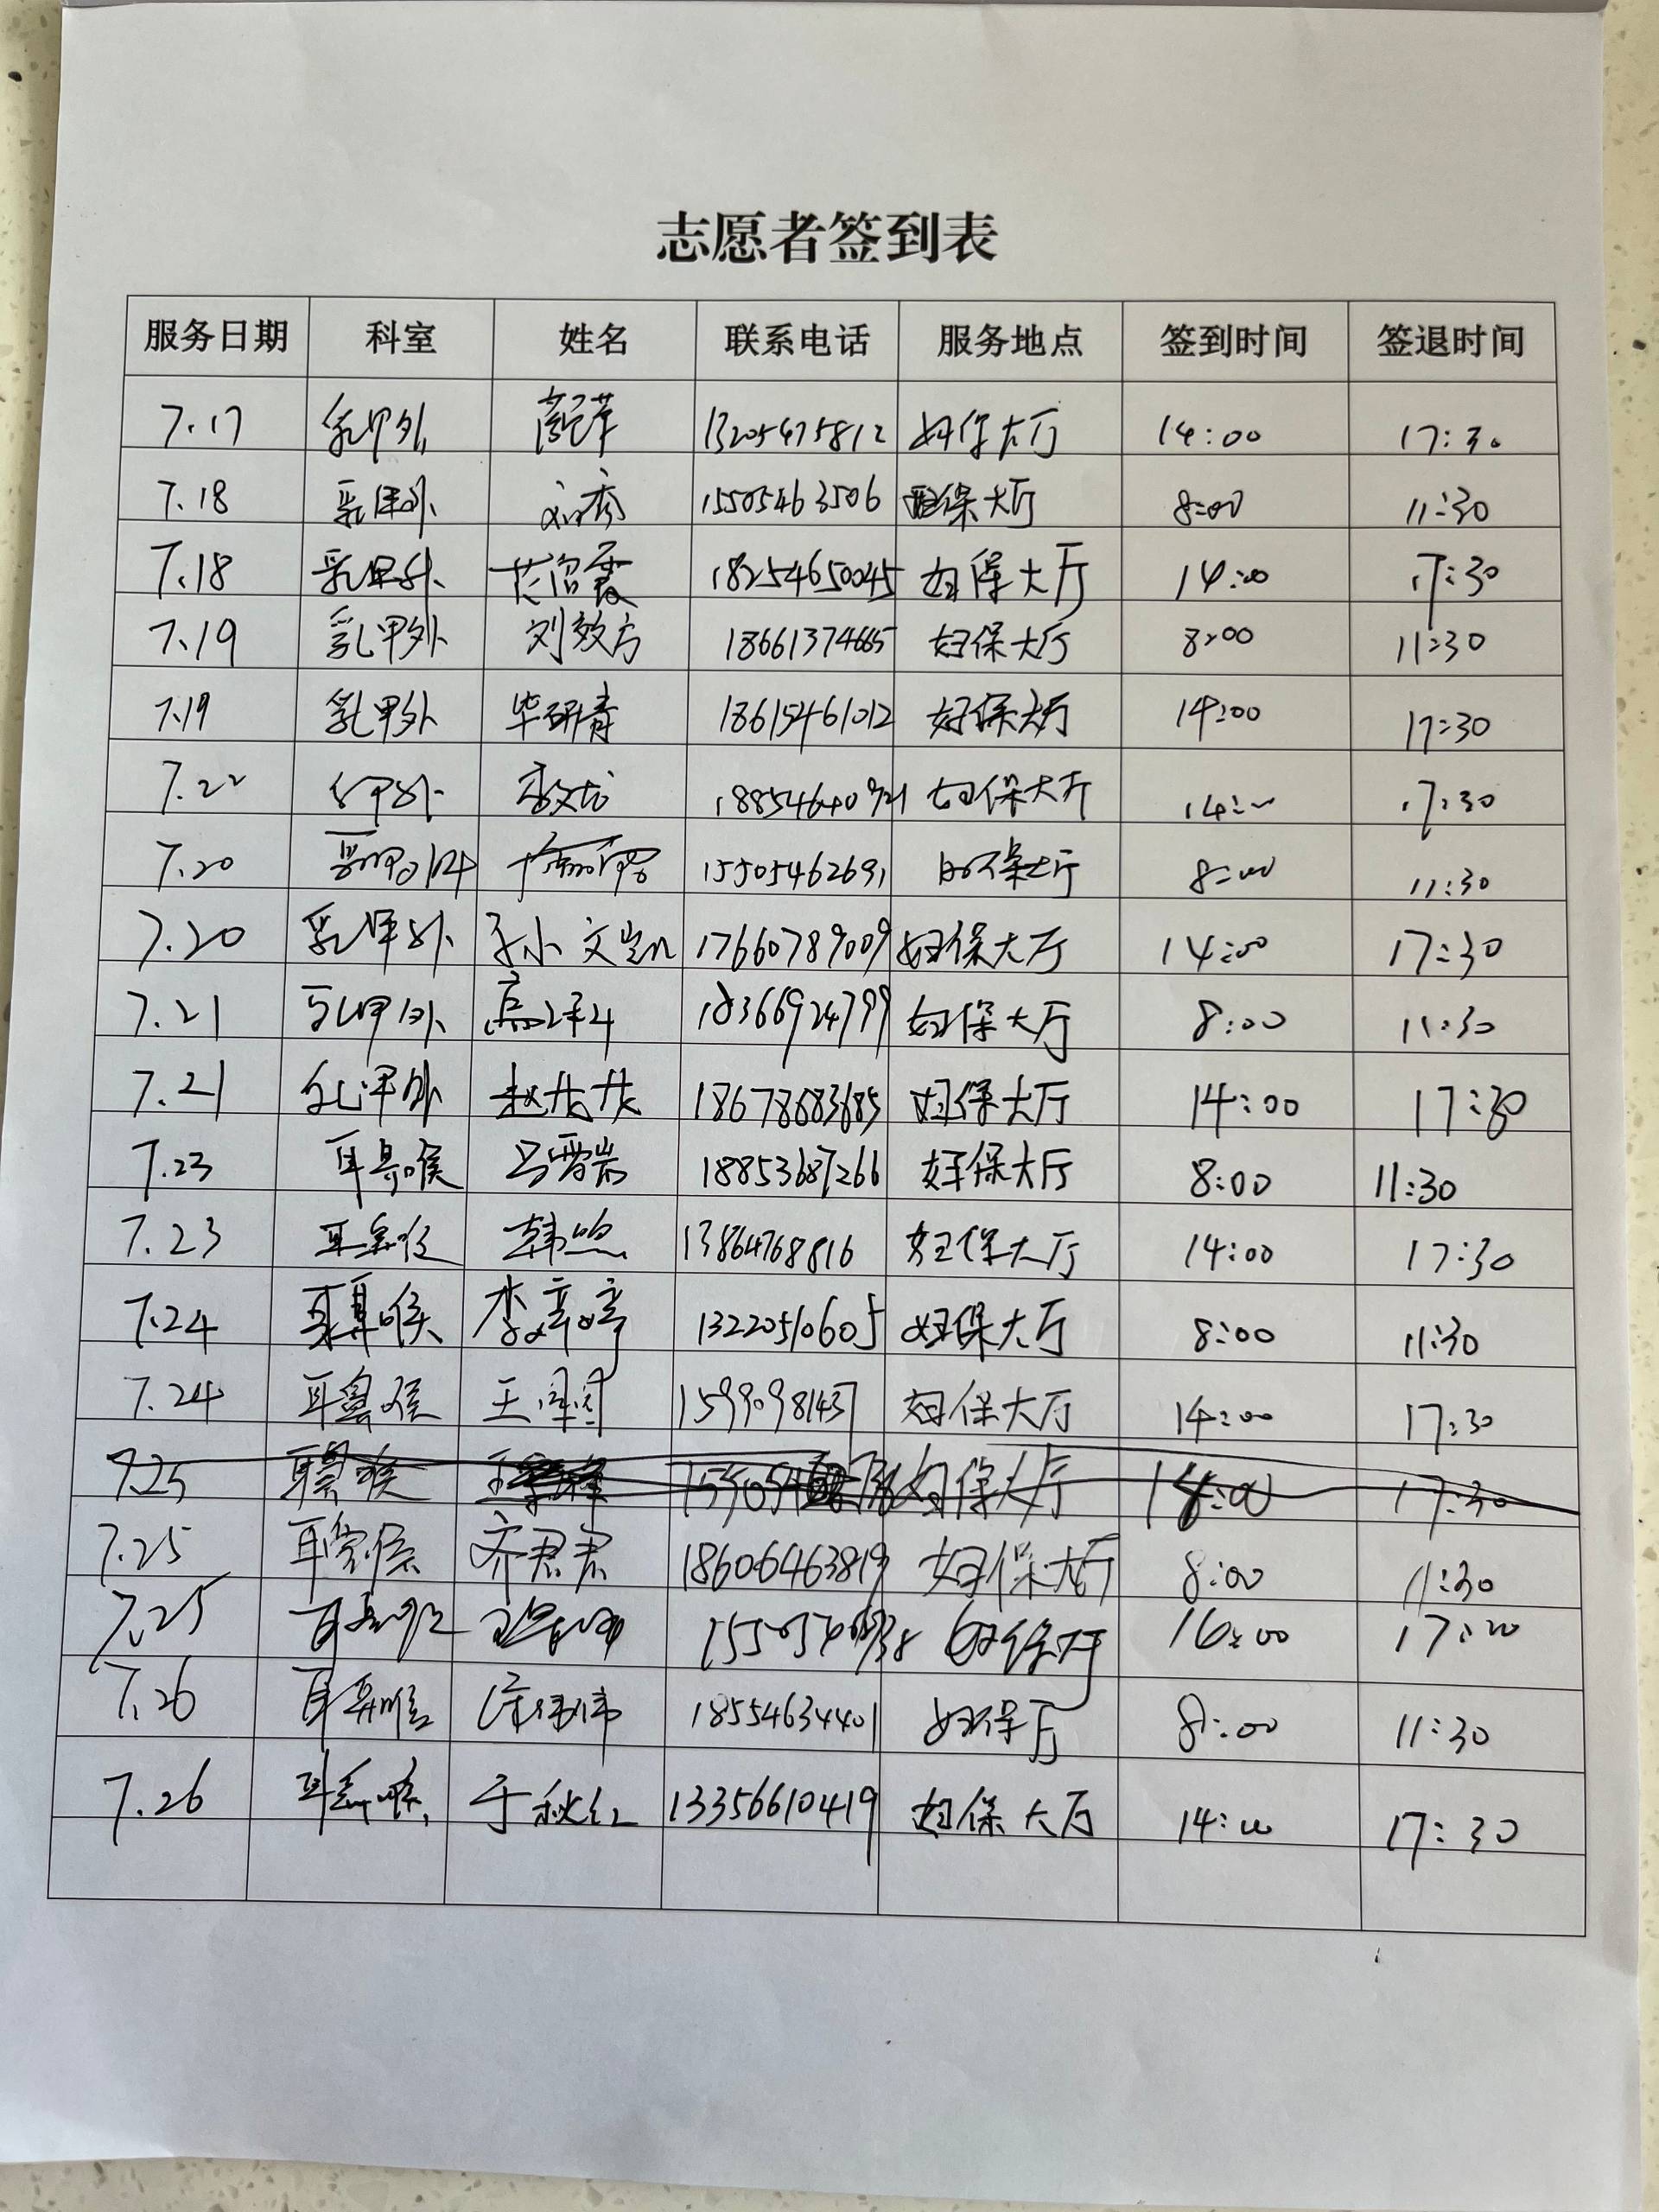 志愿者签到表
服务日期 科室 姓名 联系电话 服务地点 签到时间 签退时间
7.17 乳甲外 13205475812 妇保大厅 14:00 17:30
7.18 乳甲外 刘秀 15505463506 妇保大厅 8:00 11:30
7.18 乳甲外 18254650045 妇保大厅 14:00 17:30
7.19 乳甲外 刘效方 18661374665 妇保大厅 8:00 11:30
7.19 乳甲外 毕研青 18615461012 妇保大厅 14:00 17:30
7.22 乳甲外 妇保大厅 14:00 17:30
7.20 乳甲外 15505462691 妇保大厅 8:00 11:30
7.20 乳甲外 孙文凯 17660789009 妇保大厅 14:00 17:30
7.21 乳甲外 18366924799 妇保大厅 8:00 11:30
7.21 乳甲外 赵茂茂 18678683685 妇保大厅 14:00 17:30
7.23 耳鼻喉 马雪岩 18853687266 妇保大厅 8:00 11:30
7.23 耳鼻喉 韩 13864768816 妇保大厅 14:00 17:30
7.24 耳鼻喉 李婷婷 13220510605 妇保大厅 8:00 11:30
7.24 耳鼻喉 王 15990981437 妇保大厅 14:00 17:30
7.25 耳鼻喉 妇保大厅 14:00 17:30
7.25 耳鼻喉 齐君君 18606463819 妇保大厅 8:00 11:30
7.25 耳鼻喉 妇保大厅 16:00 17:20
7.26 耳鼻喉 徐伟伟 18554634401 妇保厅 8:00 11:30
7.26 耳鼻喉 于秋红 13356610419 妇保大厅 14:00 17:30